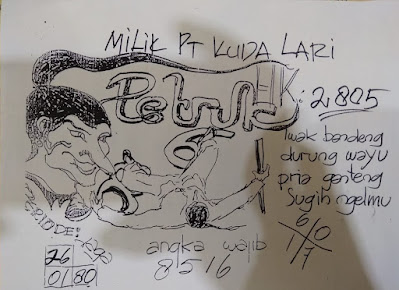 MILIK PT KUDA LARI
Petruk
K: 2805
Iwak bandeng
durung wayu
pria ganteng
Sugih ngelmu
6/0
1/7
PERIODE:
angka wajib
8516
26
01 80